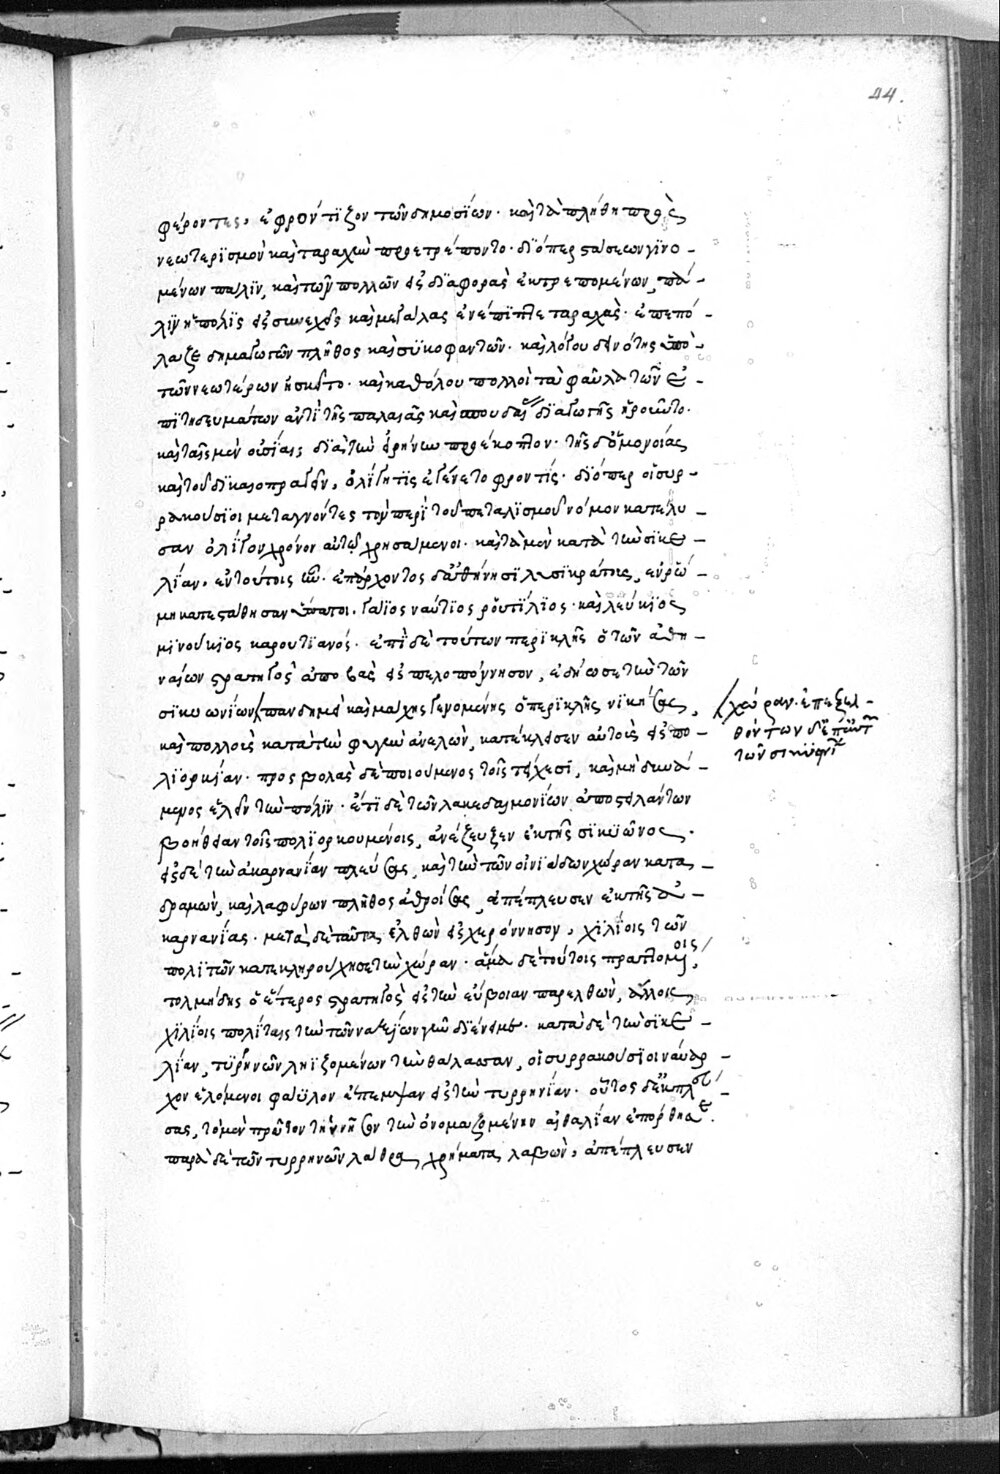 44.
φέροντες, ἐφρόντιζον τῶν δημοσίων· καὶ τὰ πλήθη πρὸς
νεωτερισμὸν καὶ ταραχὴν προετρέποντο· διόπερ στάσεων γινο-
μένων πάλιν, καὶ τῶν πολλῶν εἰς διαφορὰς ἐκτρεπομένων, πά-
λιν ἡ πόλις εἰς συνεχεῖς καὶ μεγάλας ἐνέπιπτε ταραχάς· ἐπεπό-
λαζε δημαγωγῶν πλῆθος καὶ συκοφαντῶν· καὶ λόγου δεινότης ὑπὸ
τῶν νεωτέρων ἠσκεῖτο· καὶ καθόλου πολλοὶ τὰ φαῦλα τῶν ἐ-
πιτηδευμάτων ἀντὶ τῆς παλαιᾶς καὶ σπουδαίας διαγωγῆς
καὶ ταῖς μὲν οὐσίαις διὰ τὴν εἰρήνην προέκοπτον· τῆς δ' ὁμονοίας
καὶ τοῦ δικαιοπραγεῖν, ὀλίγη τις ἐγένετο φροντίς· διόπερ οἱ συρ-
ρακούσιοι μεταγνόντες τὸν περὶ τοῦ πεταλισμοῦ νόμον κατέλυ-
σαν ὀλίγον χρόνον αὐτῷ χρησάμενοι· καὶ τὰ μὲν κατὰ τὴν σικε-
λίαν, ἐν τούτοις ἦν· ἐπ' ἄρχοντος δ' ἀθήνησι λυσικράτους, ἐν ῥώ-
μῃ κατεστάθησαν ὕπατοι, γάϊος ναύτιος ῥουτίλιος· καὶ λεύκιος
μινούκιος καρουτιανός· ἐπὶ δὲ τούτων περικλῆς ὁ τῶν ἀθη-
ναίων στρατηγὸς ἀποβὰς εἰς πελοπόννησον, ἐδῄωσε τὴν τῶν
σικυωνίων πανδημεὶ καὶ μάχης γενομένης ὁ περικλῆς νικήσας,
χώραν· ἐπεξελ-
θόντων δὲ ἐπ' αὐτὸν
τῶν σικυωνίων
καὶ πολλοὺς κατὰ τὴν φυγὴν ἀνελών, κατέκλεισεν αὐτοὺς εἰς πο-
λιορκίαν· προσβολὰς δὲ ποιούμενος τοῖς τείχεσι, καὶ μὴ δυνά-
μενος ἑλεῖν τὴν πόλιν· ἔτι δὲ τῶν λακεδαιμονίων ἀποστειλάντων
βοήθειαν τοῖς πολιορκουμένοις, ἀνέζευξεν ἐκ τῆς σικυῶνος·
εἰς δὲ τὴν ἀκαρνανίαν πλεύσας, καὶ τὴν τῶν οἰνιαδῶν χώραν κατα-
δραμών, καὶ λαφύρων πλῆθος ἀθροίσας, ἀπέπλευσεν ἐκ τῆς ἀ-
καρνανίας· μετὰ δὲ ταῦτα ἐλθὼν εἰς χερόννησον, χιλίοις τῶν
πολιτῶν κατεκληρούχησε τὴν χώραν· ἅμα δὲ τούτοις πραττομένοις,
τολμίδης ὁ ἕτερος στρατηγὸς εἰς τὴν εὔβοιαν παρελθών, ἄλλοις
χιλίοις πολίταις τὴν τῶν ναξίων γῆν διένειμε· κατὰ δὲ τὴν σικε-
λίαν, τυρρηνῶν ληιζομένων τὴν θάλασσαν, οἱ συρρακούσιοι ναύαρ-
χον ἑλόμενοι φάϋλον ἔπεμψαν εἰς τὴν τυρρηνίαν· οὗτος δὲ ἐκπλεύ-
σας, τὸ μὲν πρῶτον τὴν νῆσον τὴν ὀνομαζομένην αἰθαλίαν ἐπόρθησε·
παρὰ δὲ τῶν τυρρηνῶν λάθρᾳ χρήματα λαβών, ἀπέπλευσεν